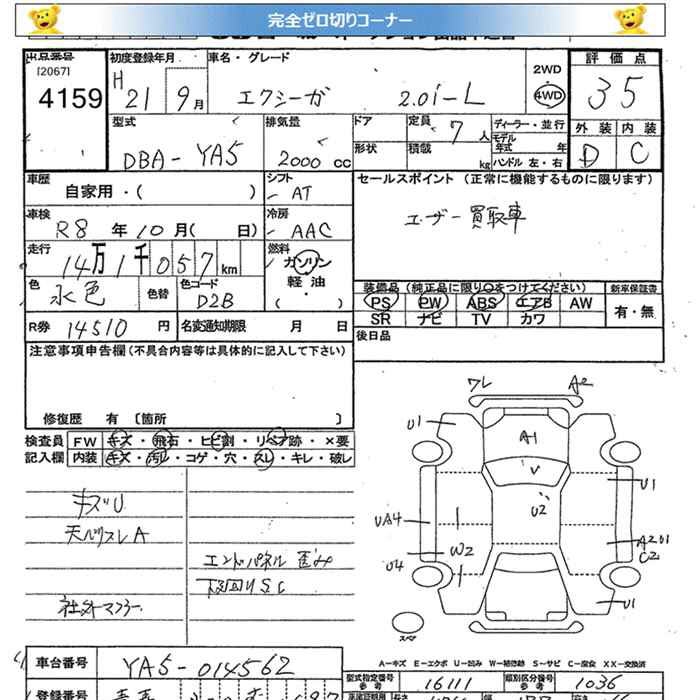 完全ゼロ切りコーナー
出品番号 初度登録年月 車名・グレード 2WD 4WD 評価点
[2067]
4159 H21 9月 エクシーガ 2.0i-L 35
型式 排気量 ドア 定員 7人 ディーラー・並行 外装 内装
モデル年式 年
DBA-YA5 2000cc 形状 積載 kg ハンドル 左・右 D C
車歴 シフト セールスポイント (正常に機能するものに限ります)
自家用・( ) AT
車検 冷房 ユーザー買取車
R8年10月( 日) AAC
走行 燃料
14万1千057km ガソリン
軽油
( )
色 色替 色コード 装備品(純正品に限り○をつけてください) 新車保証書
水色 D2B PS PW ABS エアB AW 有・無
SR ナビ TV カワ
R券 14510円 名変通知期限 月 日 後日品
注意事項申告欄(不具合内容等は具体的に記入して下さい)
修復歴 有 〔箇所 〕
検査員 FW キズ・飛石・ヒビ割・リペア跡・×要
記入欄 内装 キズ・汚レ・コゲ・穴・スレ・キレ・破レ
キズU
天バリスレA
エンドパネル歪み
下回りSC
社外マフラー
ワレ A2
U1 A1
V U1
U2
UA4 W2 A2U1
C2
U4
U1
スペア
A−キズ E−エクボ U−凹み W−補修跡 S−サビ C−腐食 XX−交換済
車台番号 YA5-014562 型式指定番号 16111 類別区分番号 1036
参考 参考
登録番号